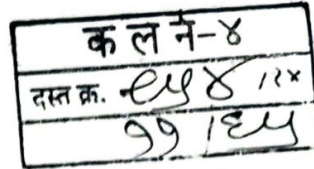 क ल ने-४
दस्त क्र. ९५४ /२४
११ /६५